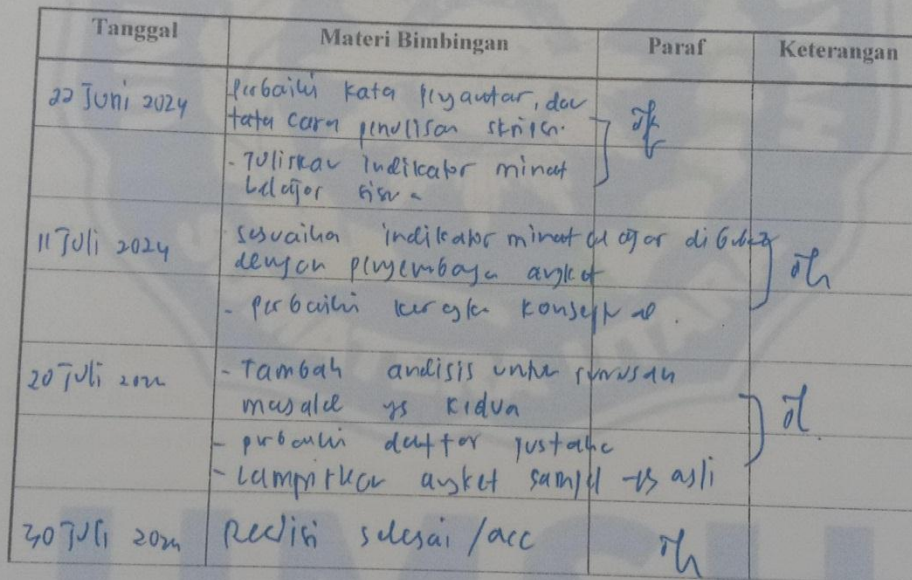 Tanggal Materi Bimbingan Paraf Keterangan
22 Juni 2024 Perbaiki kata pengantar, dan
tata cara penulisan skripsi.
- Tuliskan indikator minat
belajar siswa
11 Juli 2024 Sesuaikan indikator minat belajar di bab 2
dengan pengembangan angket
- perbaiki kerangka konseptual.
20 Juli 2024 - Tambah analisis untuk rumusan
masalah yg kedua
- perbaiki daftar pustaka
- Lampirkan angket sampel yg asli
30 Juli 2024 Revisi selesai / acc